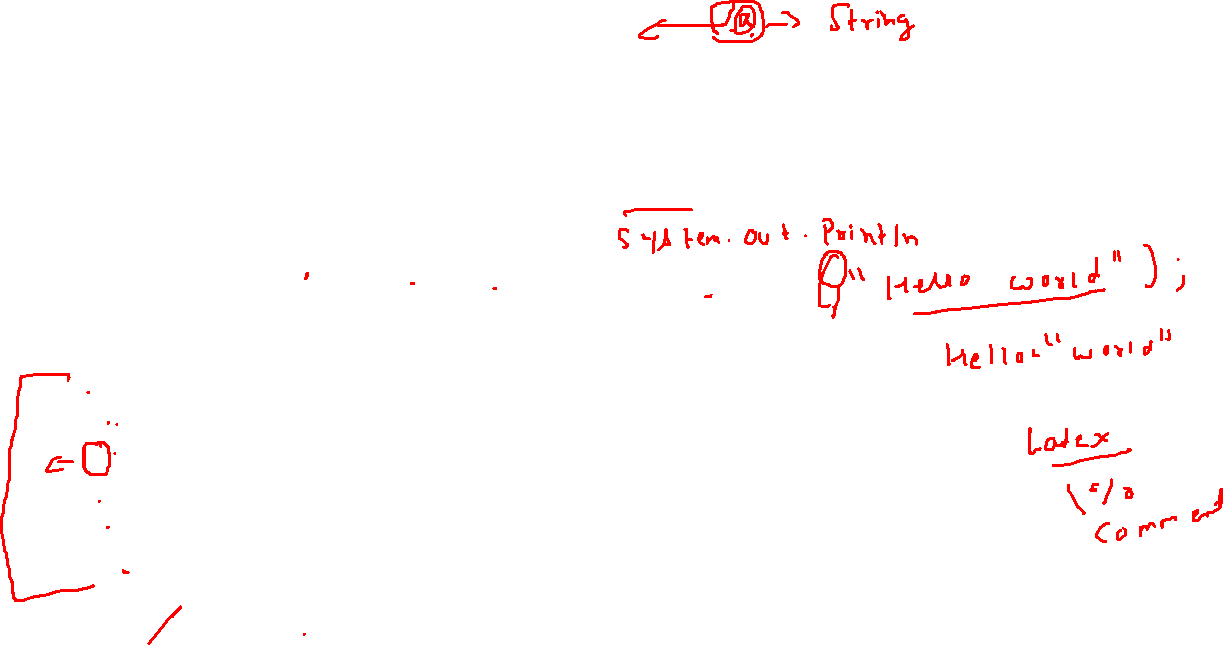 String
System.out.Println
"Hello world");
Hello "world"
Latex
\%
Command